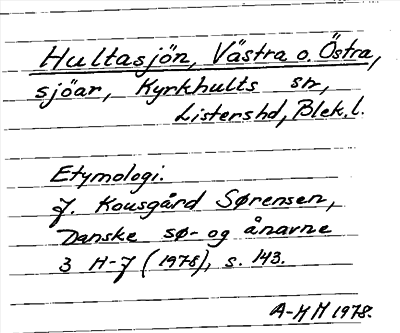 Hultasjön, Västra o. Östra,
sjöar, Kyrkhults sn,
Listershd, Blek. l.
Etymologi.
J. Kousgård Sørensen,
Danske sø- og ånavne
3 H-J (1978), s. 143.
A-M H 1978.